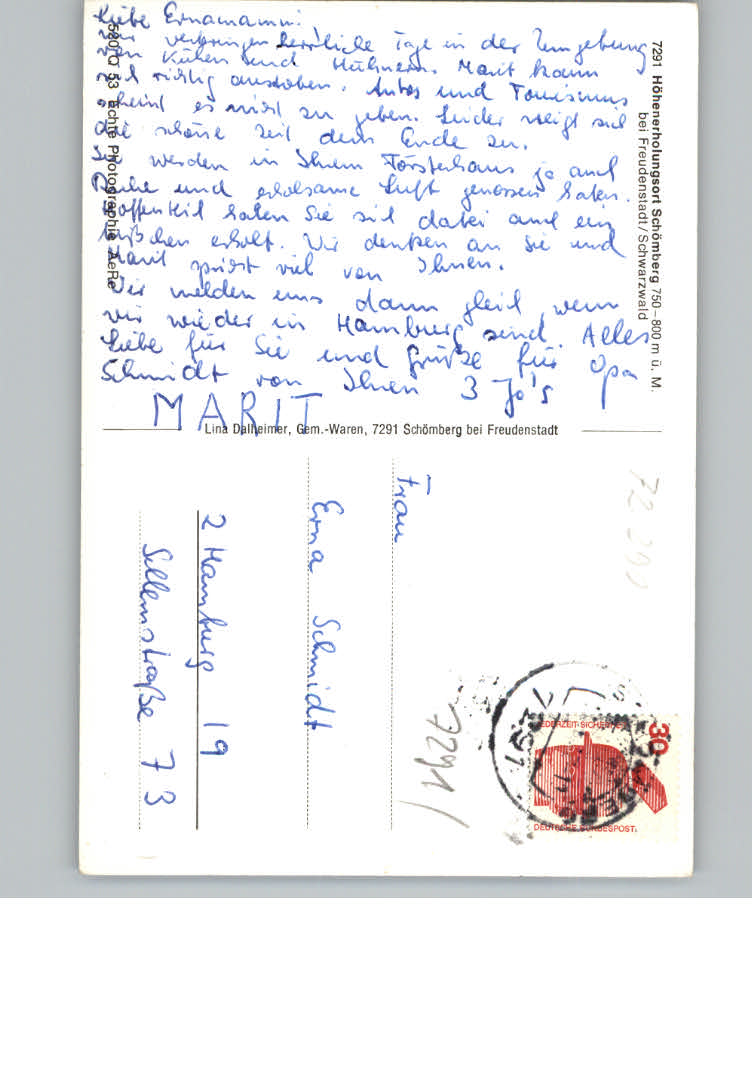 Liebe Ernamami!
Wir verbringen herrliche Tage in der Umgebung
von Kühen und Hühnern. Marit kann
sich richtig austoben. Autos und Tourismus
scheint es nicht zu geben. Leider neigt sich
die schöne Zeit dem Ende zu.
Sie werden in Ihrem Försterhaus ja auch
Ruhe und erholsame Luft genossen haben.
Hoffentlich haben Sie sich dabei auch ein
bißchen erholt. Wir denken an Sie und
Marit spricht viel von Ihnen.
Wir melden uns dann gleich, wenn
wir wieder in Hamburg sind. Alles
Liebe für Sie und Grüße für Opa
Schmidt von Ihnen 3 Jo's
MARIT
7291 Höhenerholungsort Schömberg 750-800 m ü. M.
bei Freudenstadt/Schwarzwald
Echte Photographie
Lina Dalheimer, Gem.-Waren, 7291 Schömberg bei Freudenstadt
Frau
Erna Schmidt
2 Hamburg 19
Sillemstraße 73
7291
30
JEDERZEIT SICHERHEIT
DEUTSCHE BUNDESPOST
7291